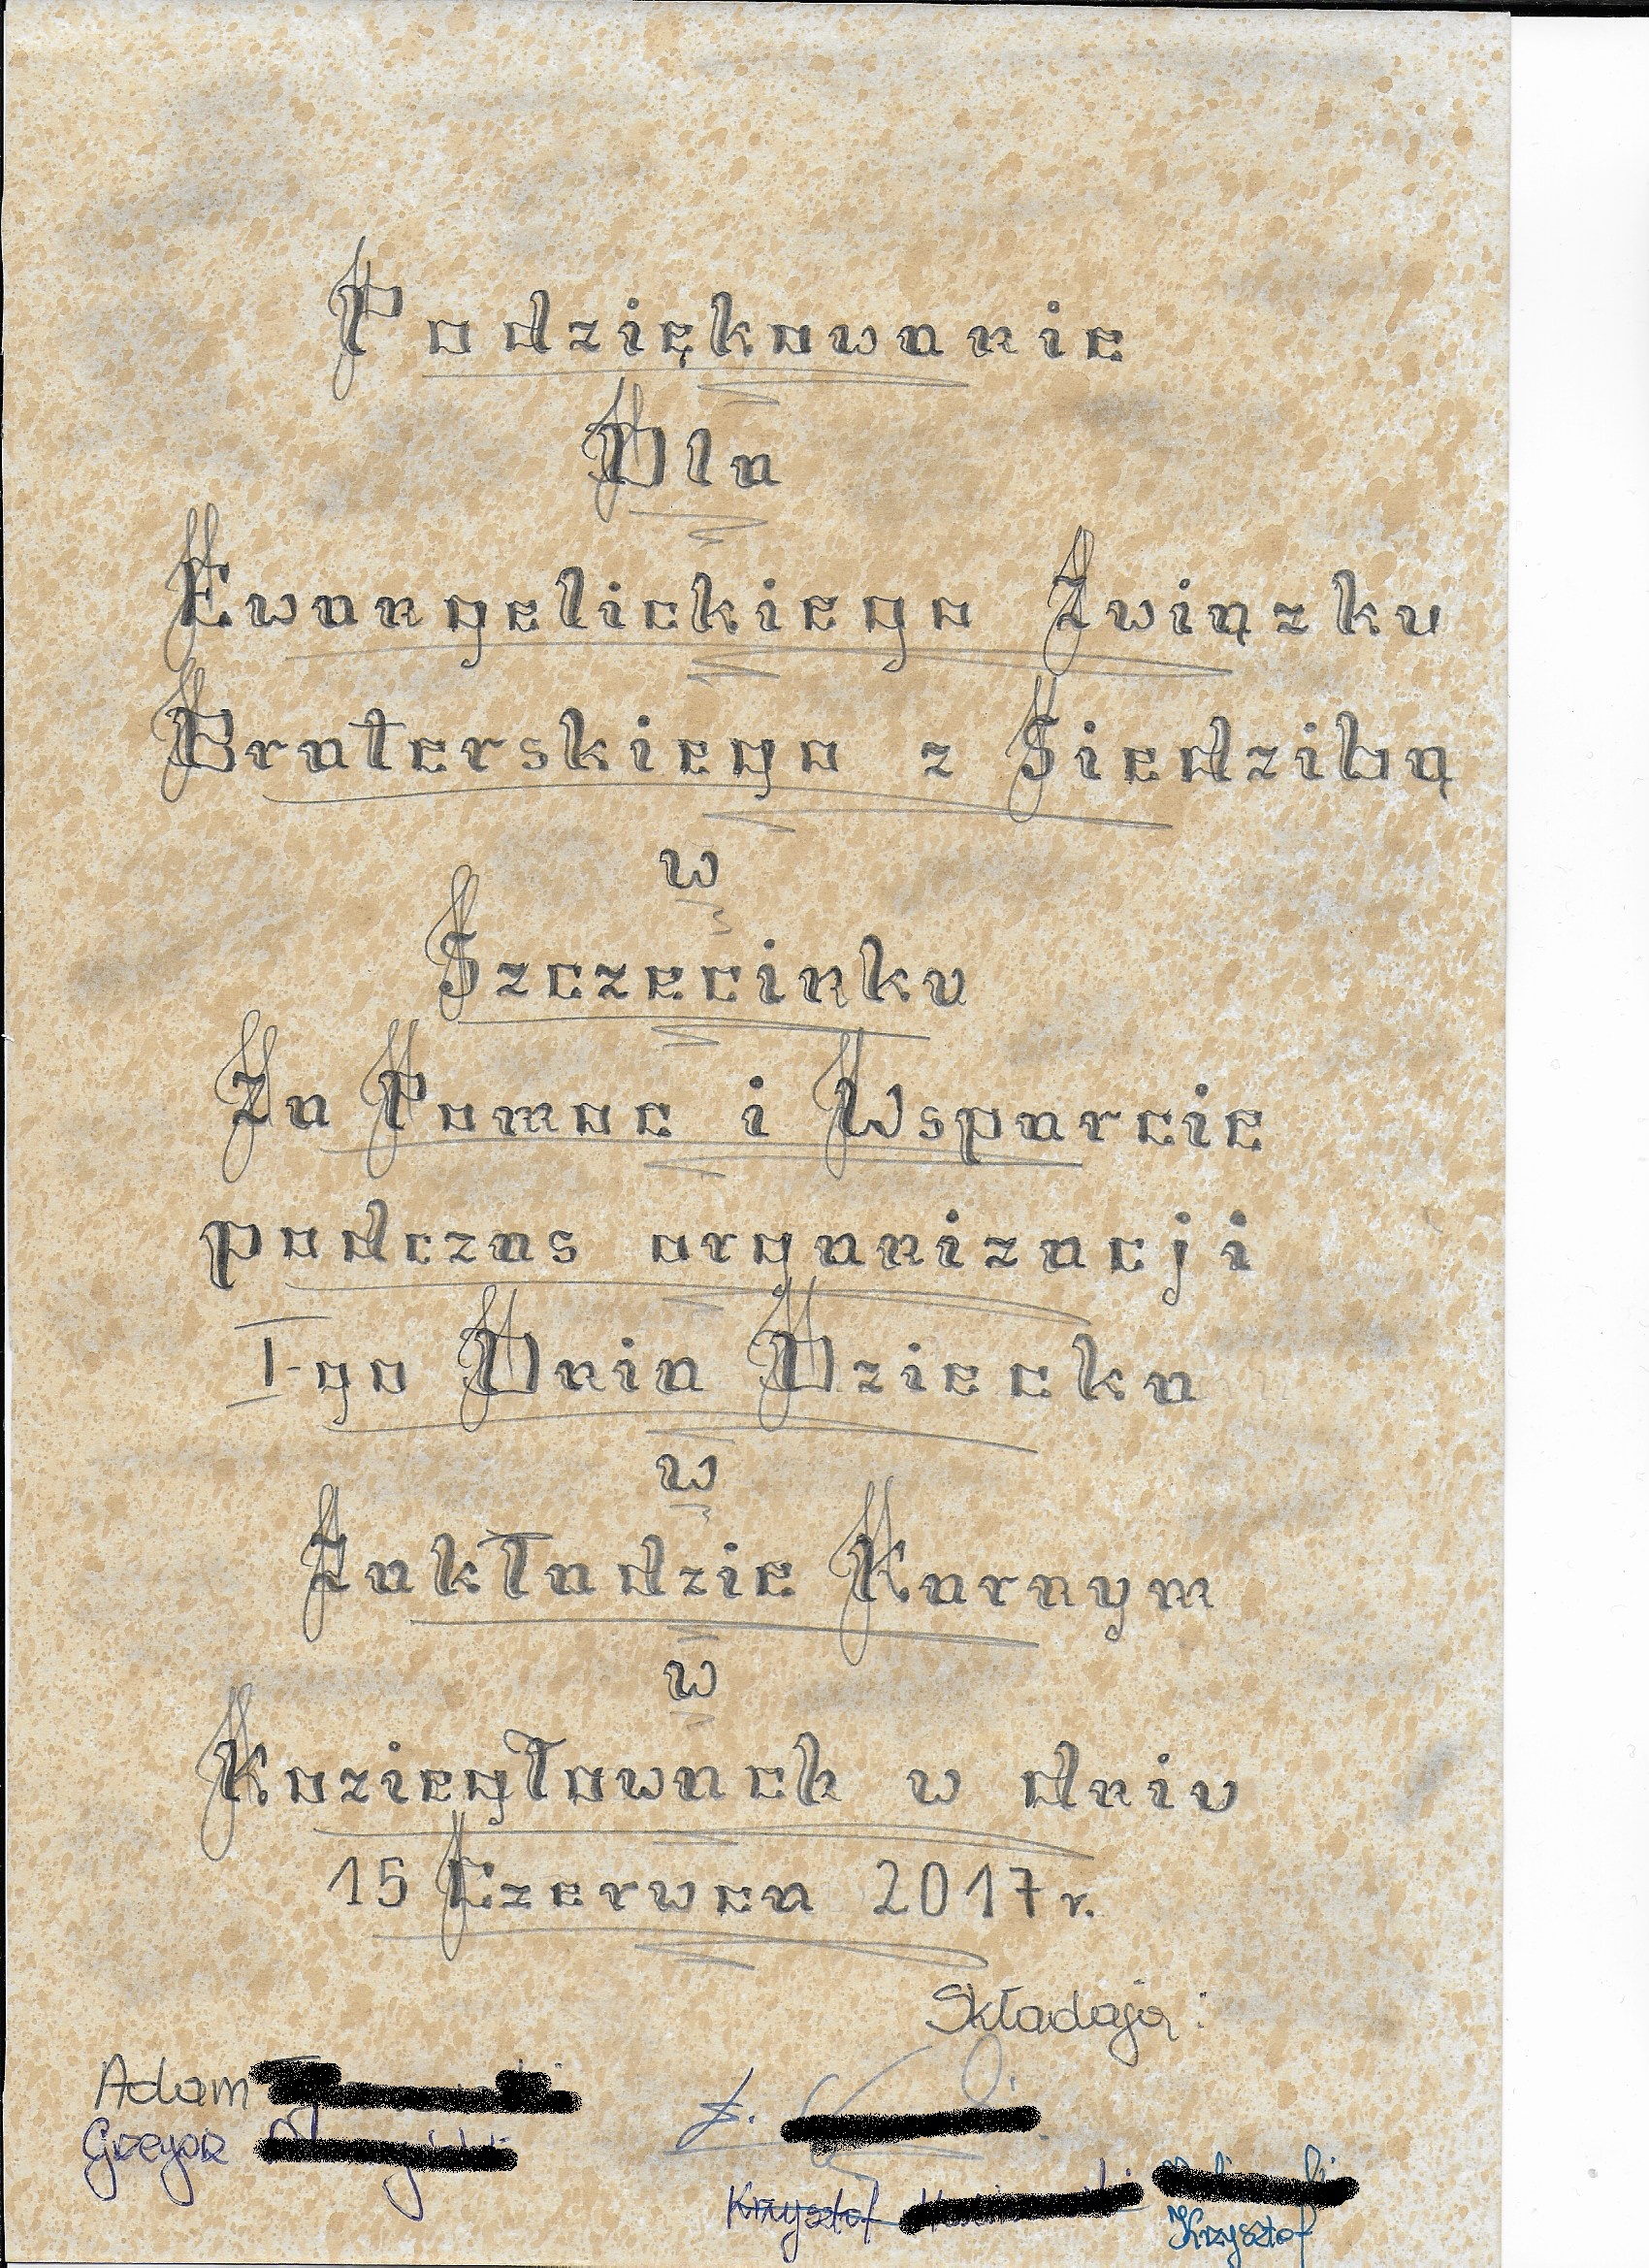 Podziękowanie
Dla
Ewangelickiego Związku
Braterskiego z Siedzibą
w
Szczecinku
Za Pomoc i Wsparcie
podczas organizacji
I-go Dnia Dziecka
w
Zakładzie Karnym
w
Koziegłowach w dniu
15 Czerwca 2017 r.
Składają:
Adam
Gregor
Krzysztof
Krzysztof